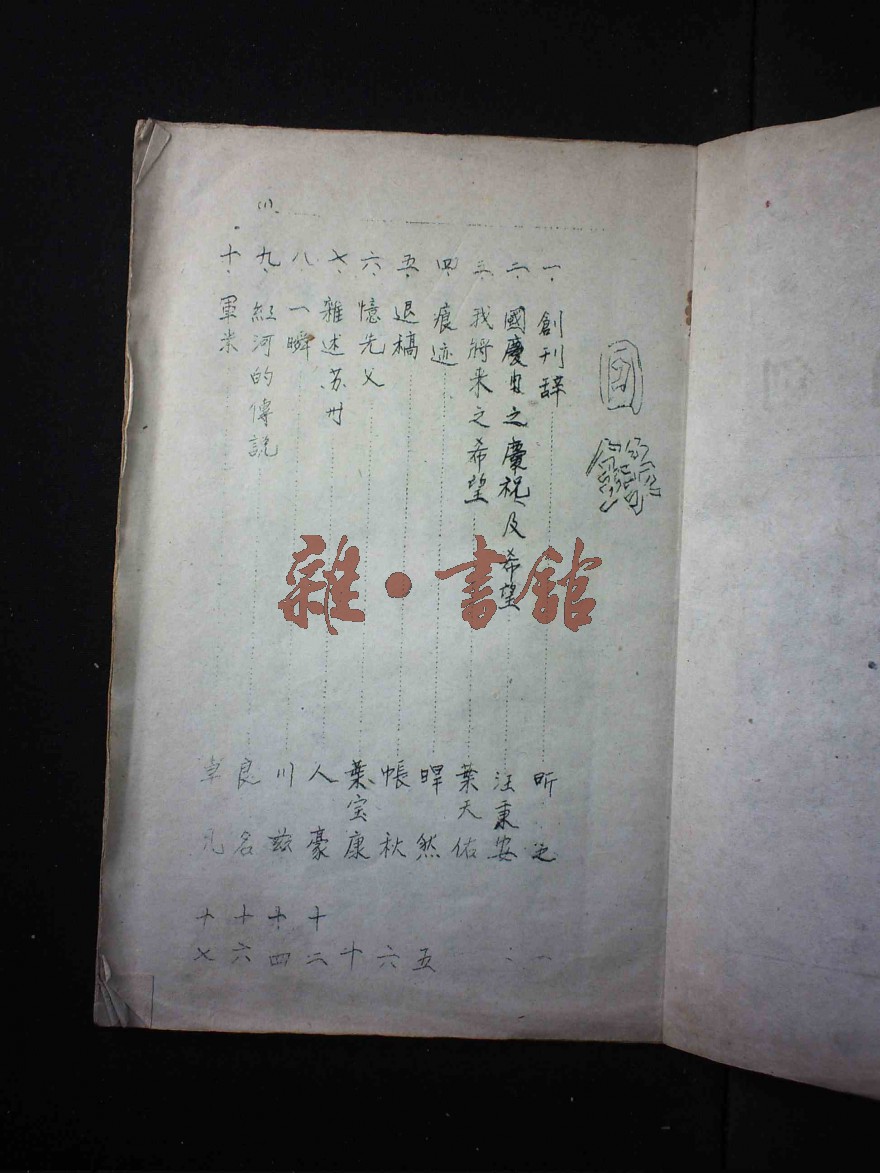 目錄
一、創刊辞 昕之 一
二、國慶日之慶祝及希望 汪秉安
三、我將来之希望 葉天佑
四、痕迹 㫰然 五
五、退稿 帳秋 六
六、憶先父 葉宝康 十
七、雜述苏州 人豪 十二
八、一瞬 川茲 十四
九、紅河的傳説 良名 十六
十、軍米 卓凡 十七
(1)
雜·書館